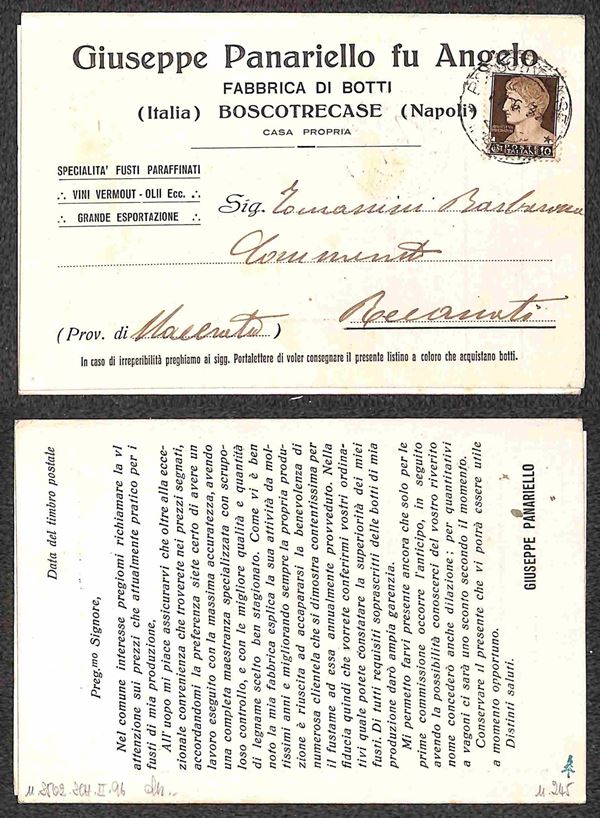 Giuseppe Panariello fu Angelo
FABBRICA DI BOTTI
(Italia) BOSCOTRECASE (Napoli)
CASA PROPRIA
SPECIALITA' FUSTI PARAFFINATI
∴ VINI VERMOUT - OLII Ecc. ∴
∴ GRANDE ESPORTAZIONE ∴
Sig. Tomassini Barbarossa
Commercio
Recanati
(Prov. di Macerata)
In caso di irreperibilità preghiamo ai sigg. Portalettere di voler consegnare il presente listino a coloro che acquistano botti.
10
Data del timbro postale
Preg.mo Signore,
Nel comune interesse pregiomi richiamare la vI
attenzione sui prezzi che attualmente pratico per i
fusti di mia produzione.
All' uopo mi piace assicurarvi che oltre alla ecce-
zionale convenienza che troverete nei prezzi segnati,
accordandomi la preferenza siete certo di avere un
lavoro eseguito con la massima accuratezza, avendo
una completa maestranza specializzata con scrupo-
loso controllo, e con le migliore qualità e quantità
di legname scelto ben stagionato. Come vi è ben
noto la mia fabbrica esplica la sua attività da mol-
tissimi anni e migliorando sempre la propria produ-
zione è riuscita ad accapararsi la benevolenza di
numerosa clientela che si dimostra contentissima per
il fustame ad essa annualmente provveduto. Nella
fiducia quindi che vorrete conferirmi vostri ordina-
tivi quale potete constatare la superiorità dei miei
fusti. Di tutti i requisiti soprascritti delle botti di mia
produzione darò ampia garenzia.
Mi permetto farvi presente ancora che solo per le
prime commissione occorre l'anticipo, in seguito
avendo la possibilità conoscerci del vostro riverito
nome concederò anche dilazione; per quantitativi
a vagoni ci sarà uno sconto secondo il momento.
Conservare il presente che vi potrà essere utile
a momento opportuno.
Distinti saluti.
GIUSEPPE PANARIELLO
n. 245